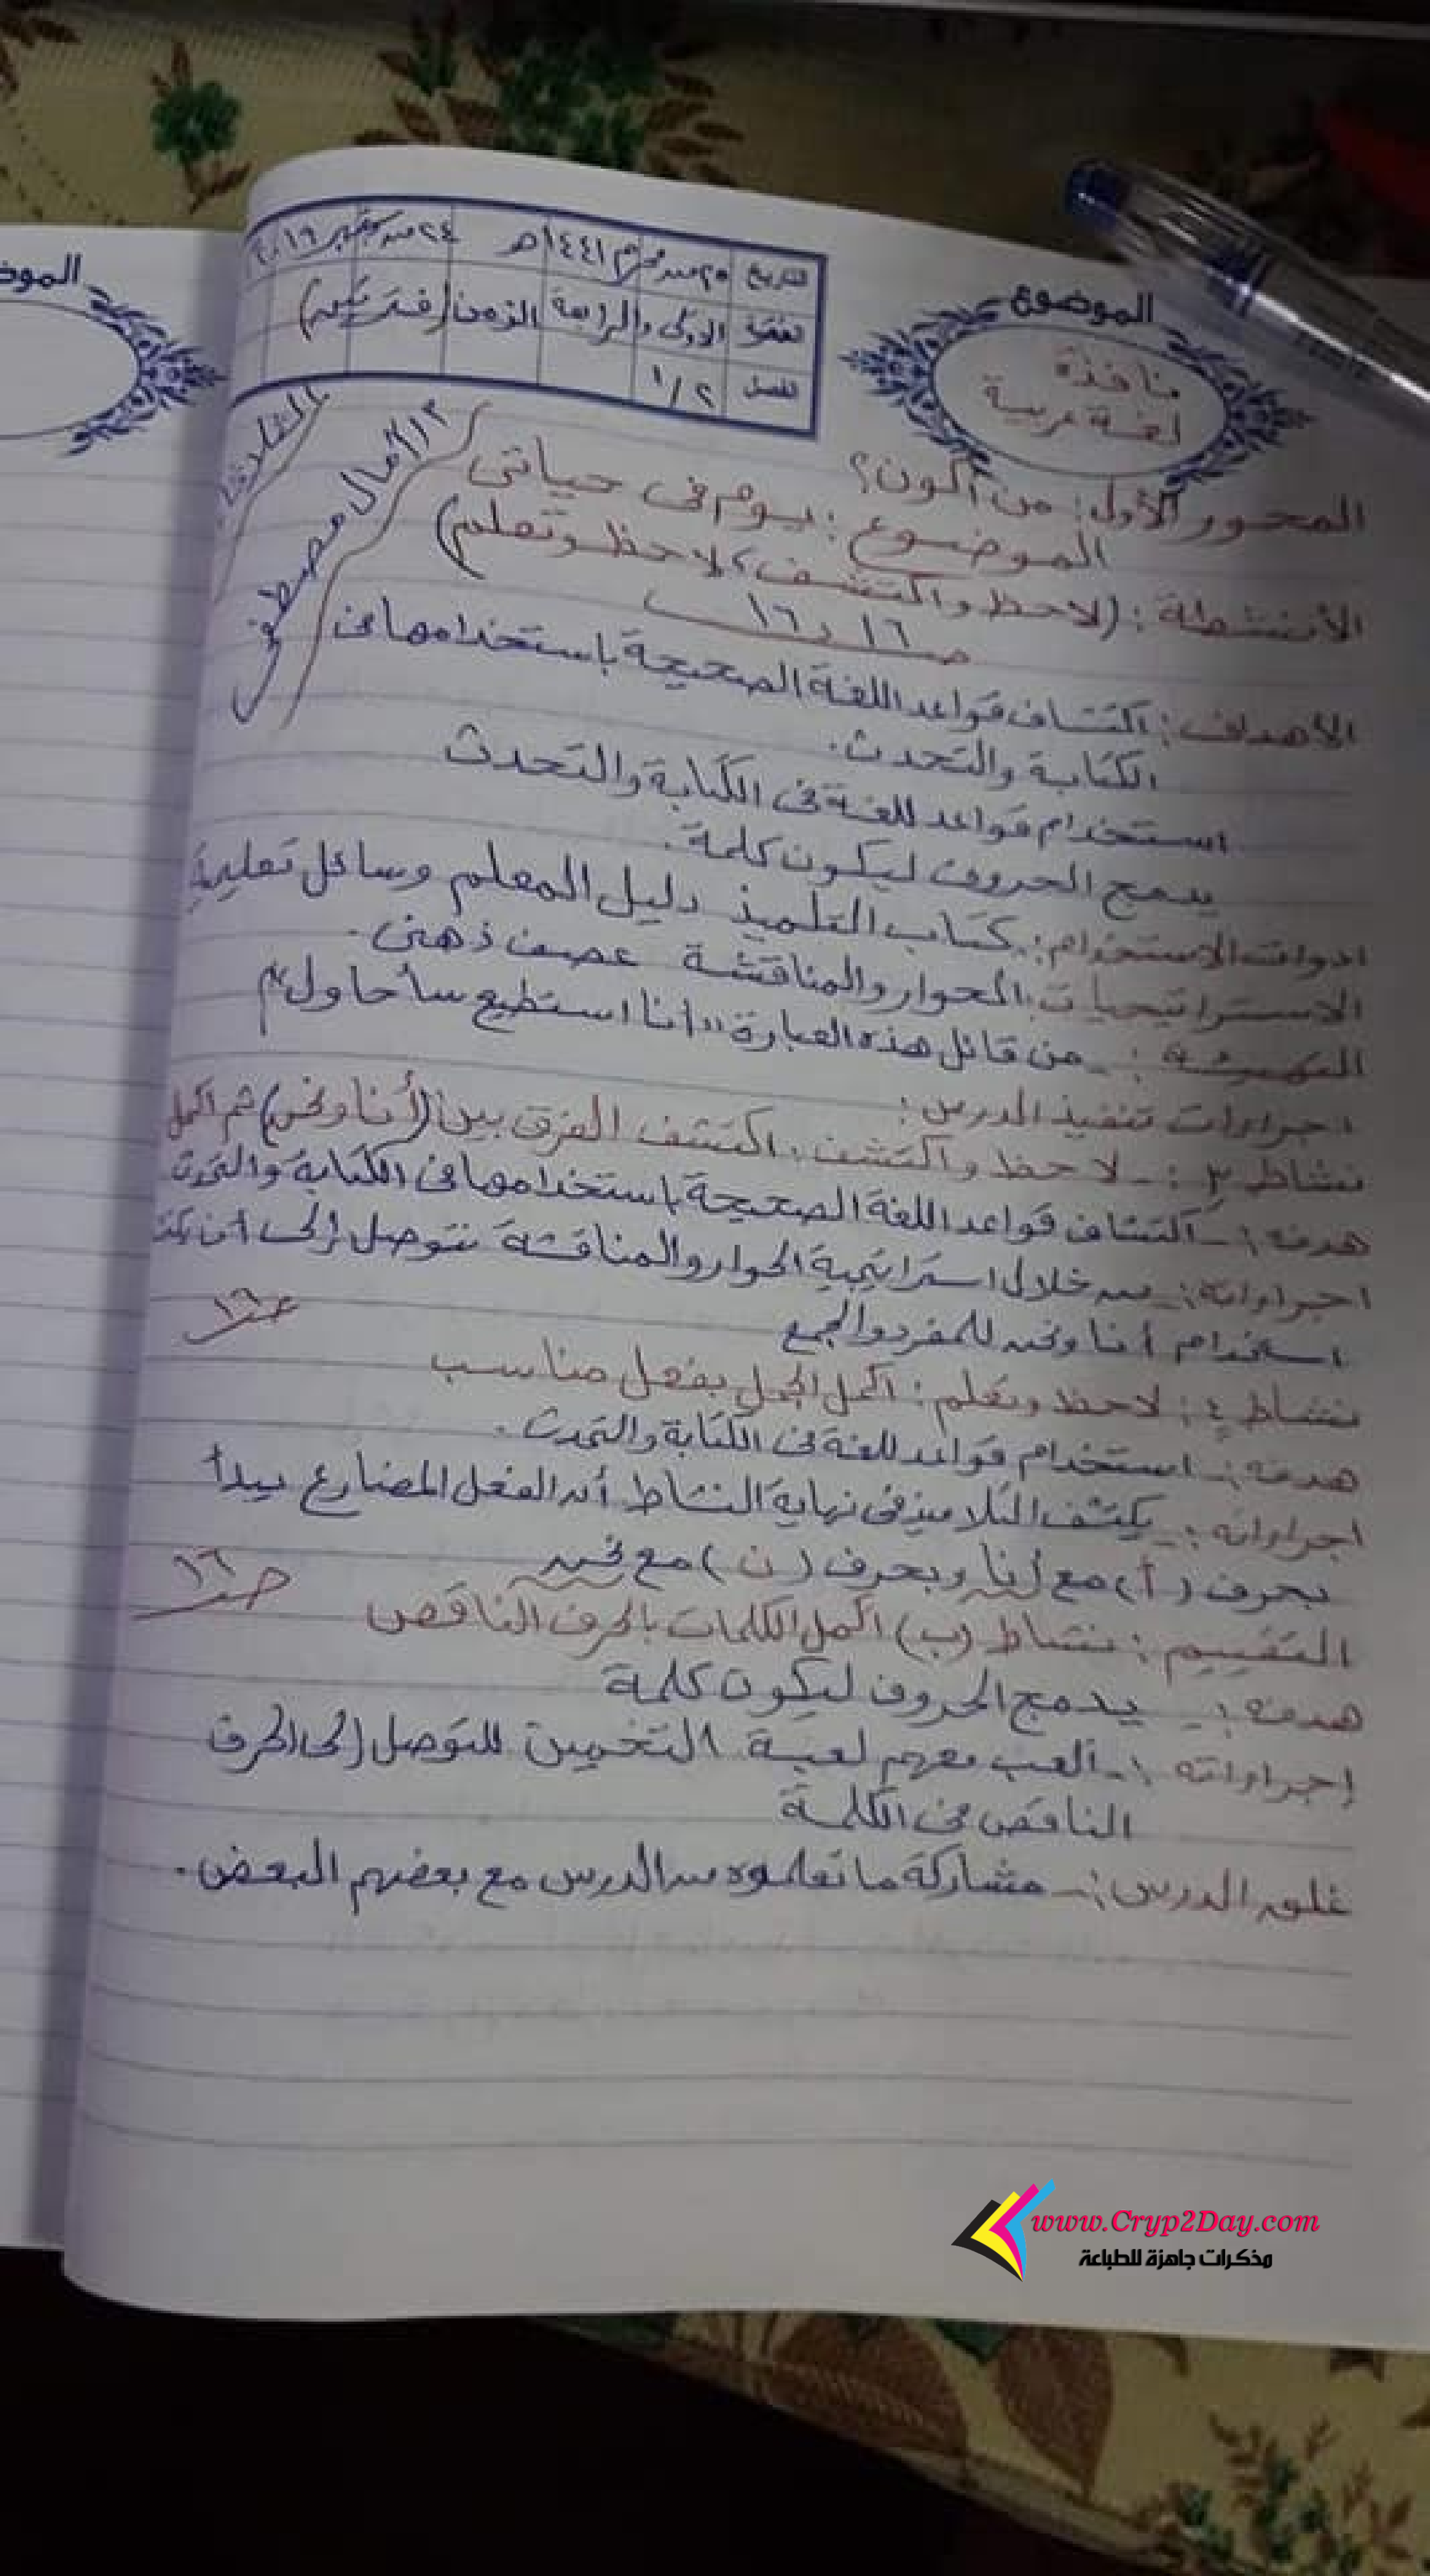 الموضوع
نافذة
لغة عربية
التاريخ ٢٥ من محرم ١٤٤١هـ ٢٤ من سبتمبر ٢٠١٩
الفترة الأولى والرابعة الزمن (فترتين)
الفصل ١/٢
الثلاثاء
أ/ آمال مصطفى
المحور الأول: من أكون؟
الموضوع: يوم فى حياتى
الأنشطة: (لاحظ واكتشف، لاحظ وتعلم)
صـ ١٦ و ١٦
الأهداف: اكتشاف قواعد اللغة الصحيحة باستخدامها فى
الكتابة والتحدث.
استخدام قواعد للغة فى الكتابة والتحدث
يدمج الحروف ليكون كلمة.
ادوات الاستخدام: كتاب التلميذ دليل المعلم وسائل تعليمية
الاستراتيجيات: الحوار والمناقشة عصف ذهنى.
التهيئة: ـ من قائل هذه العبارة "أنا استطيع سأحاول"
اجراءات تنفيذ الدرس:
نشاط ٣: ـ لاحظ واكتشف: اكتشف الفرق بين (أنا ونحن) ثم اكمل
هدفه: ـ اكتشاف قواعد اللغة الصحيحة باستخدامها فى الكتابة والتحدث
اجراءاته: ـ من خلال استراتيجية الحوار والمناقشة نتوصل إلى أن
استخدام أنا ونحن للمفرد والجمع
صـ ١٦
نشاط ٤: لاحظ وتعلم: اكمل الجمل بفعل مناسب
هدفه: ـ استخدام قواعد للغة فى الكتابة والتحدث.
اجراءاته: ـ يكتشف التلاميذ فى نهاية النشاط أن الفعل المضارع يبدأ
بحرف (أ) مع أنا وبحرف (ن) مع نحن
التقييم: نشاط (ب) اكمل الكلمات بالحرف الناقص
صـ ١٦
هدفه: ـ يدمج الحروف ليكون كلمة
إجراءاته: ـ ألعب معهم لعبة التخمين للتوصل إلى الحرف
الناقص فى الكلمة
غلق الدرس: ـ مشاركة ما تعلموه من الدرس مع بعضهم البعض.
www.Cryp2Day.com
مذكرات جاهزة للطباعة